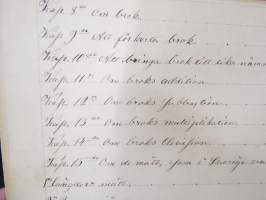 Kap. 8de Om bråk.
Kap. 9de Att förkorta bråk.
Kap. 10de Att bringa bråk till lika näm
Kap. 11te Om bråks addition.
Kap. 12te Om bråks subtraction.
Kap. 13de Om bråks multiplikation
Kap. 14de Om bråks division.
Kap. 15de Om de mått, som i Sverige
Längdemått.